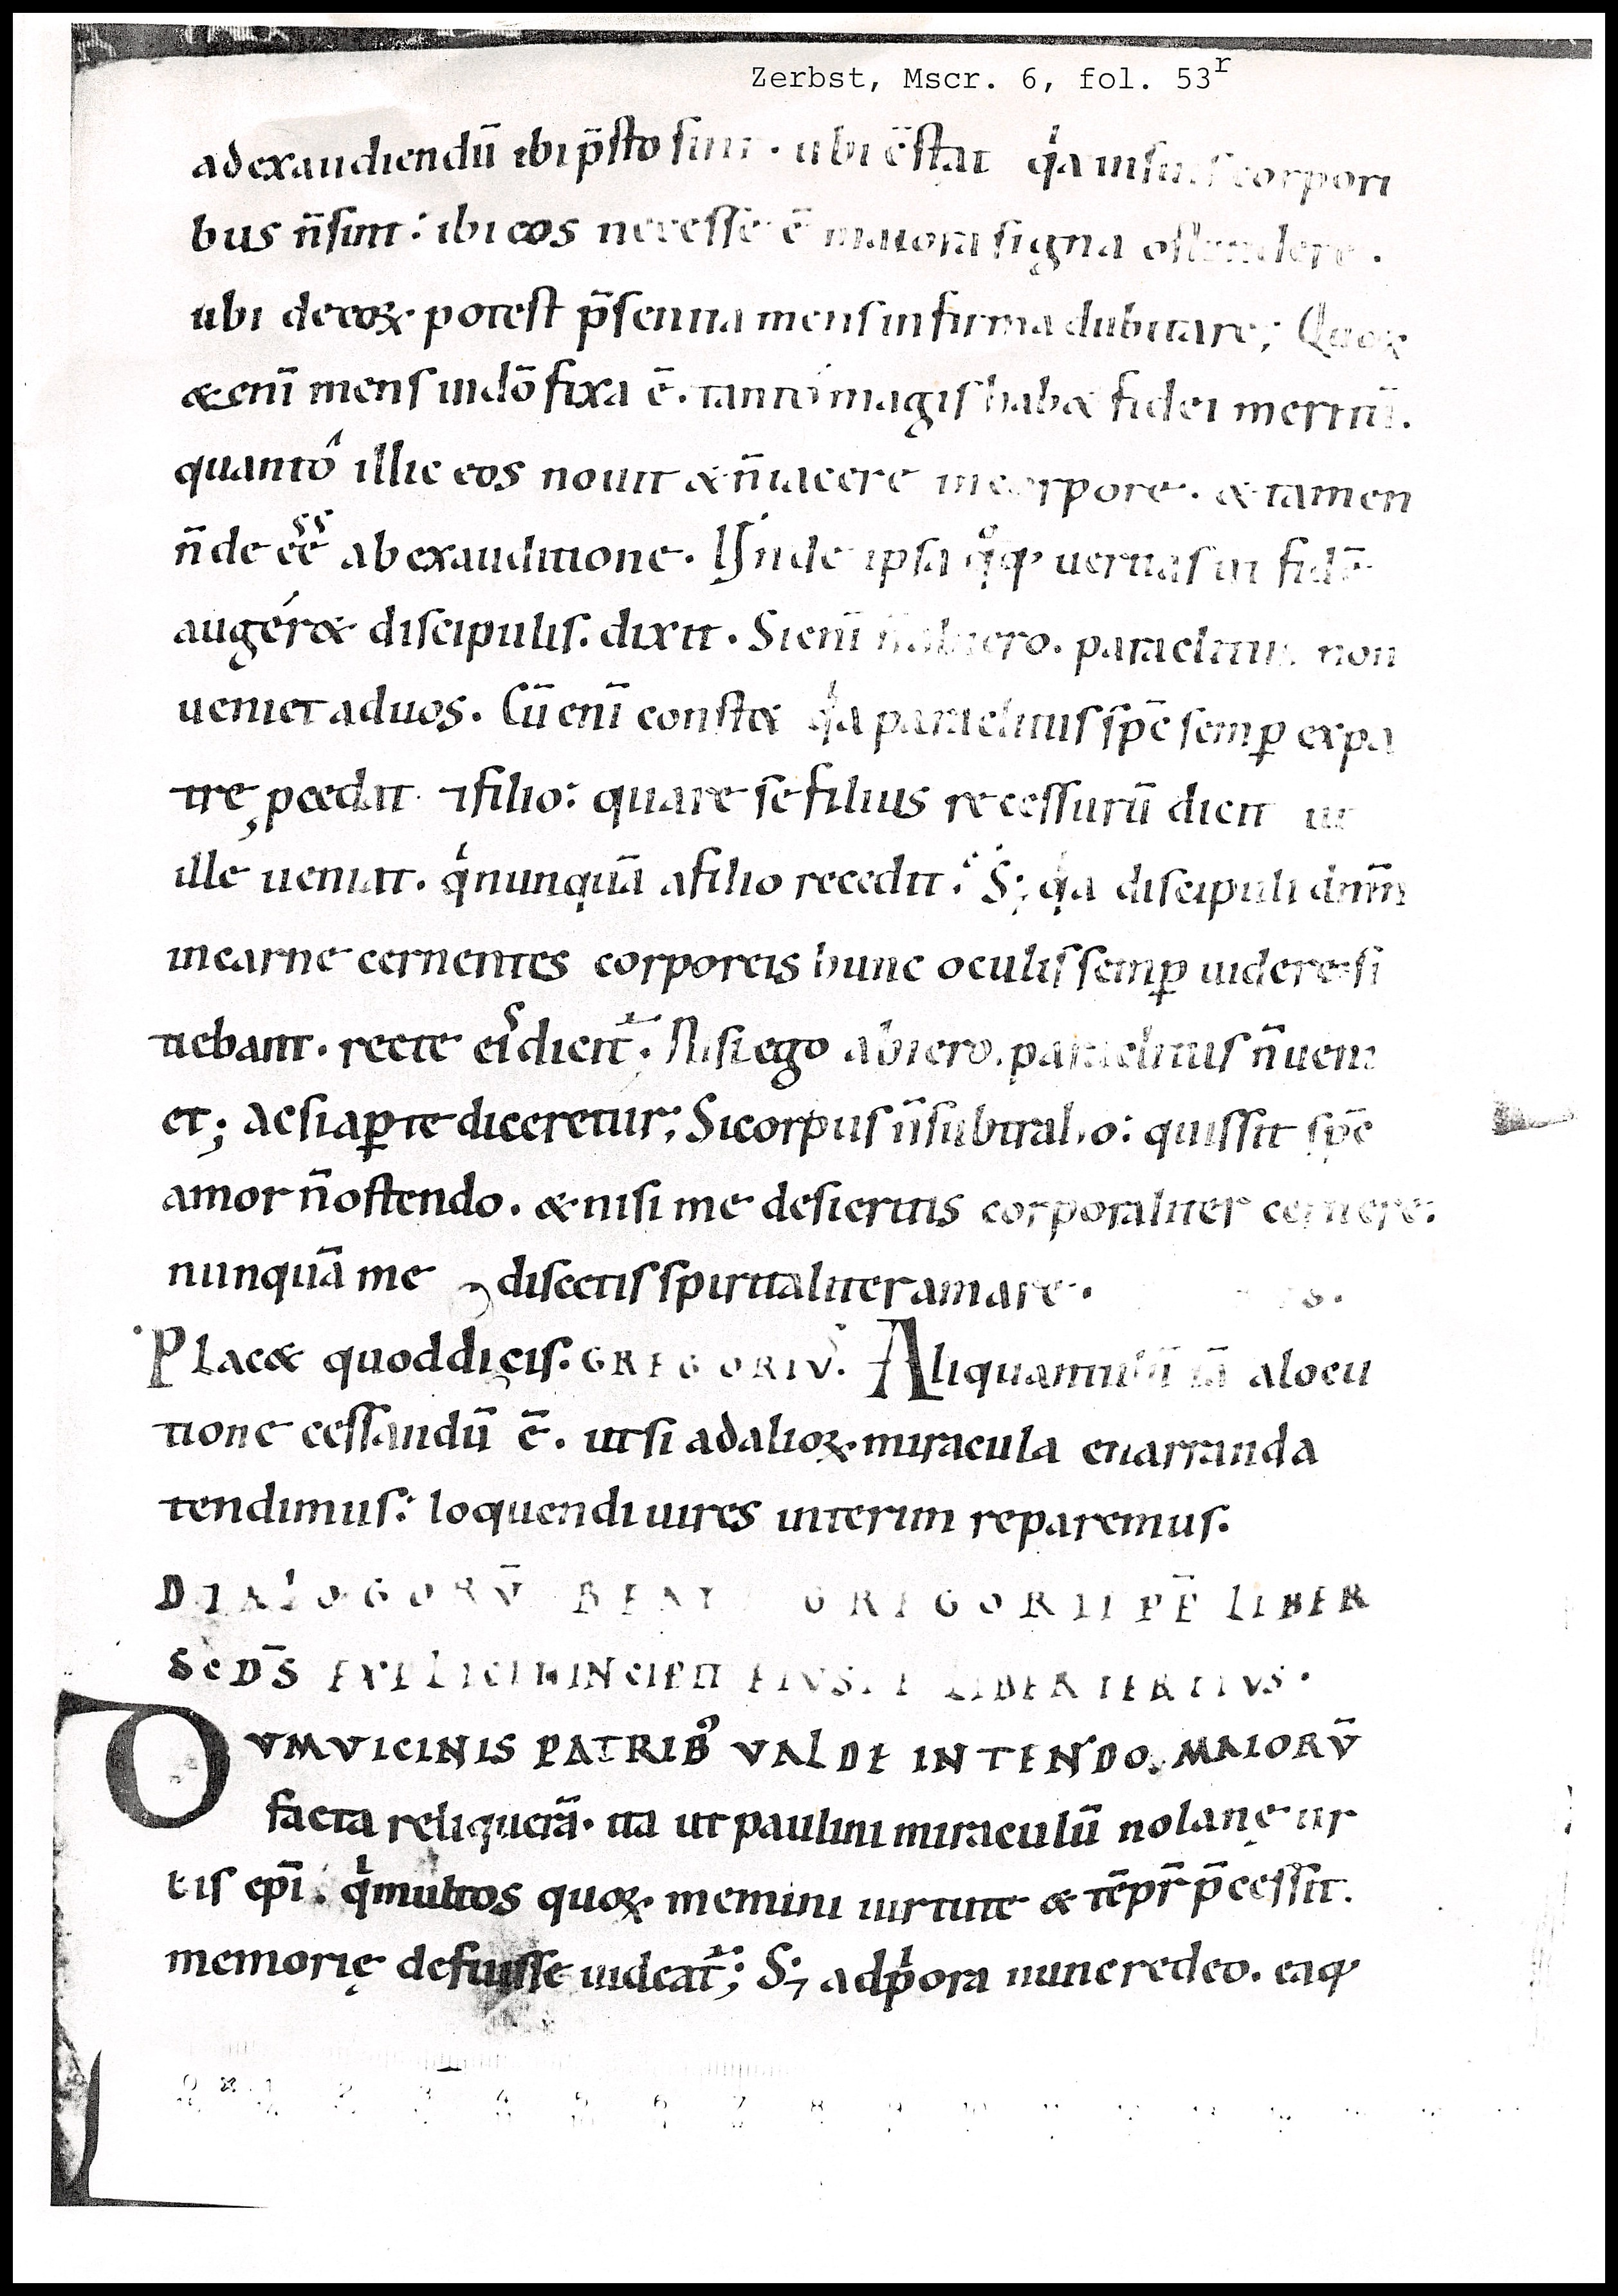 Zerbst, Mscr. 6, fol. 53ʳ
ad exaudiendū ibi p̄sto sint . ubi c̄stat qͥa in suis corpori
bus n̄ sunt : ibi eos necesse ē maiora signa ostendere .
ubi de eoꝝ potest p̄sentia mens infirma dubitare ; Quoꝝ
& enī mens in dō fixa ē . tanto magis hab& fidei meritū .
quanto illic eos nouit & n̄ iacere in corpore . & tamen
n̄ deeēē ab exauditione . Unde ipsa qͦq; ueritas ut fidē
auger& discipulis . dixit . Si enī n̄ abiero . paraclitus non
ueniet ad uos . Cū enī const& qͥa paraclitus sp̄c semꝑ ex pa
tre ꝓcedit ⁊ filio : quare se filius recessurū dicit ut
ille ueniat . qͥ nunquā a filio recedit . S; qͥa discipuli dn̄m
in carne cernentes corporeis hunc oculis semꝑ uidere si
tiebant . recte eis dicit᷑ . Nisi ego abiero . paraclitus n̄ ueni
et ; Ac si aꝑte diceretur ; Si corpus n̄ subtraho : quis sit sp̄c
amor n̄ ostendo . & nisi me desieritis corporaliter cernere :
nunquā me discetis spiritaliter amare .
Plac& quod dicis . GREGORIVˢ . Aliquantulū iā a locu
tione cessandū ē . ut si ad alioꝝ miracula enarranda
tendimus : loquendi uires interim reparemus .
DIALOGORV̄ BEATI GREGORII PP̄ LIBER
SCD̄S EXPLICIT INCIPIT EIVSD LIBER TERTIVS .
DVM VICINIS PATRIBꝰ VALDE INTENDO . MAIORV̄
facta reliquerā . ita ut paulini miraculū nolanę ur
bis ep̄i . qͥ multos quoꝝ memini uirtute & tēpr̄ p̄cessit .
memorię defuisse uideat᷑ ; S; ad pͥora nunc redeo . eaq;